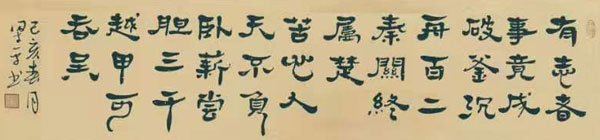 有志者
事竟成
破釜沉
舟百二
秦關終
属楚
苦心人
天不負
卧薪嘗
胆三千
越甲可
吞吴
己亥春月